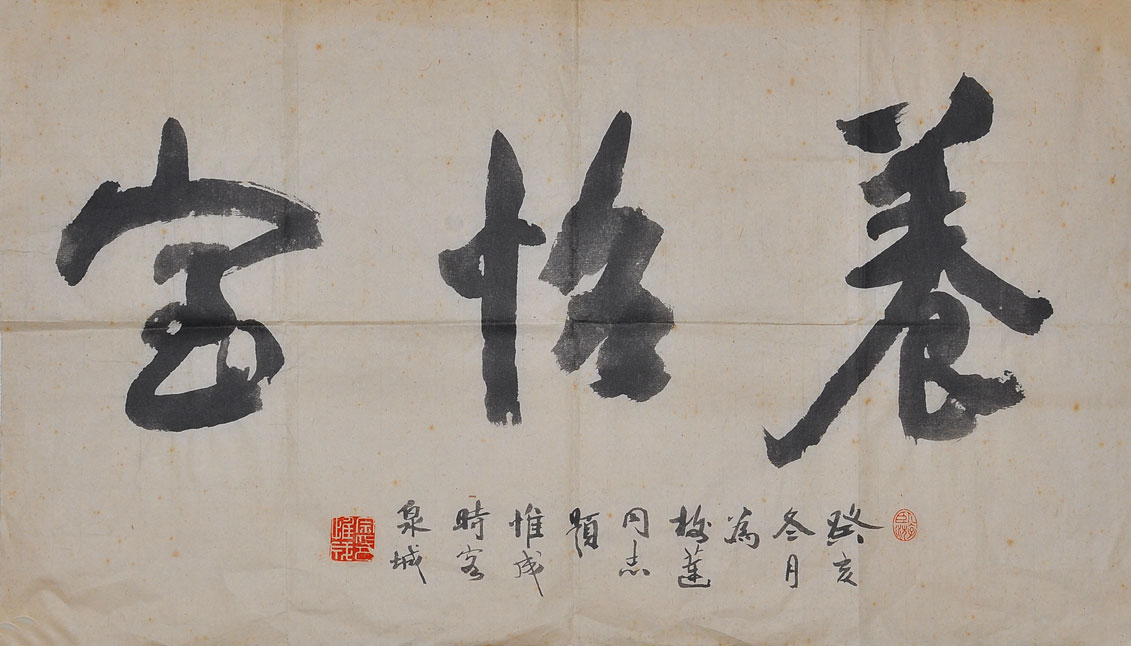 養怡室
癸亥
冬月
為
梅蓮
同志
題
惟成
時客
泉城